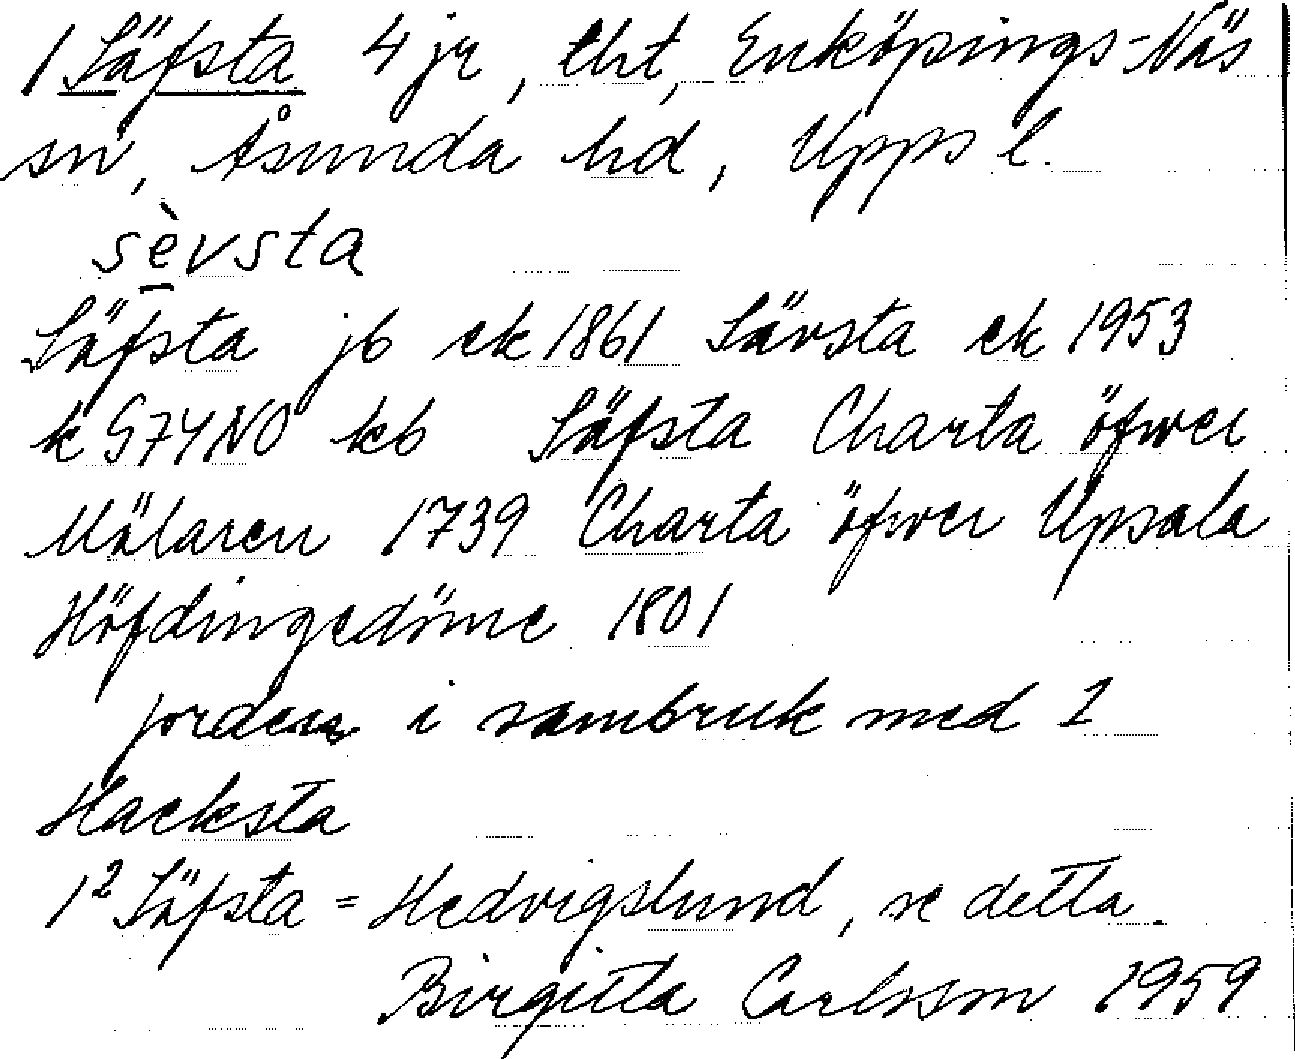 1 Säfsta 4 jr, tht, Enköpings-Näs
sn, Åsunda hd, Upps l.
sèvsta
Säfsta jb ek 1861 Sävsta ek 1953
k G7YNO kb Säfsta Charta öfwer
Mälaren 1739 Charta öfwer Upsala
Höfdingedöme 1801
jorden i sambruk med 1
Hacksta
1² Säfsta = Hedvigslund, se detta.
Birgitta Carlsson 1959